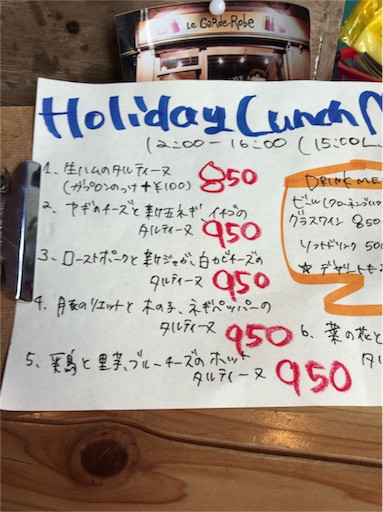 Le GaRde-RoBe
Holiday Lunch M
12:00 - 16:00 (15:00L.
1、生ハムのタルティーヌ 850
+¥100)
2、ヤギのチーズと新玉ネギ、イチゴの
タルティーヌ 950
3、ローストポークと新ジャガ、白カビチーズの
タルティーヌ 950
4、豚のリエットと木の子、ネギペッパーの
タルティーヌ 950
5、蒸鶏と里芋、ブルーチーズのホット
タルティーヌ 950
6、菜の花と
タル
DRINK ME
ビール(
グラスワイン 850
ソフトドリンク 500
★デザートも